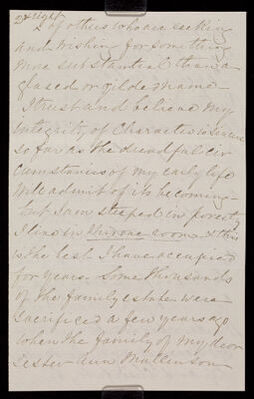 of others who are seeking
and wishing for something
more substantial than a
glased or gilded name.
I trust and believe my
integrity of Character is secure
so far as the dreadful cir
cumstances of my early life
will admit of its becoming
but I am steeped in poverty
I live in
is the best I have occupied
for years. Some thousands
of the family estate were
sacrificed a few years ago
when the family of my dear
sister Ann Mallinson